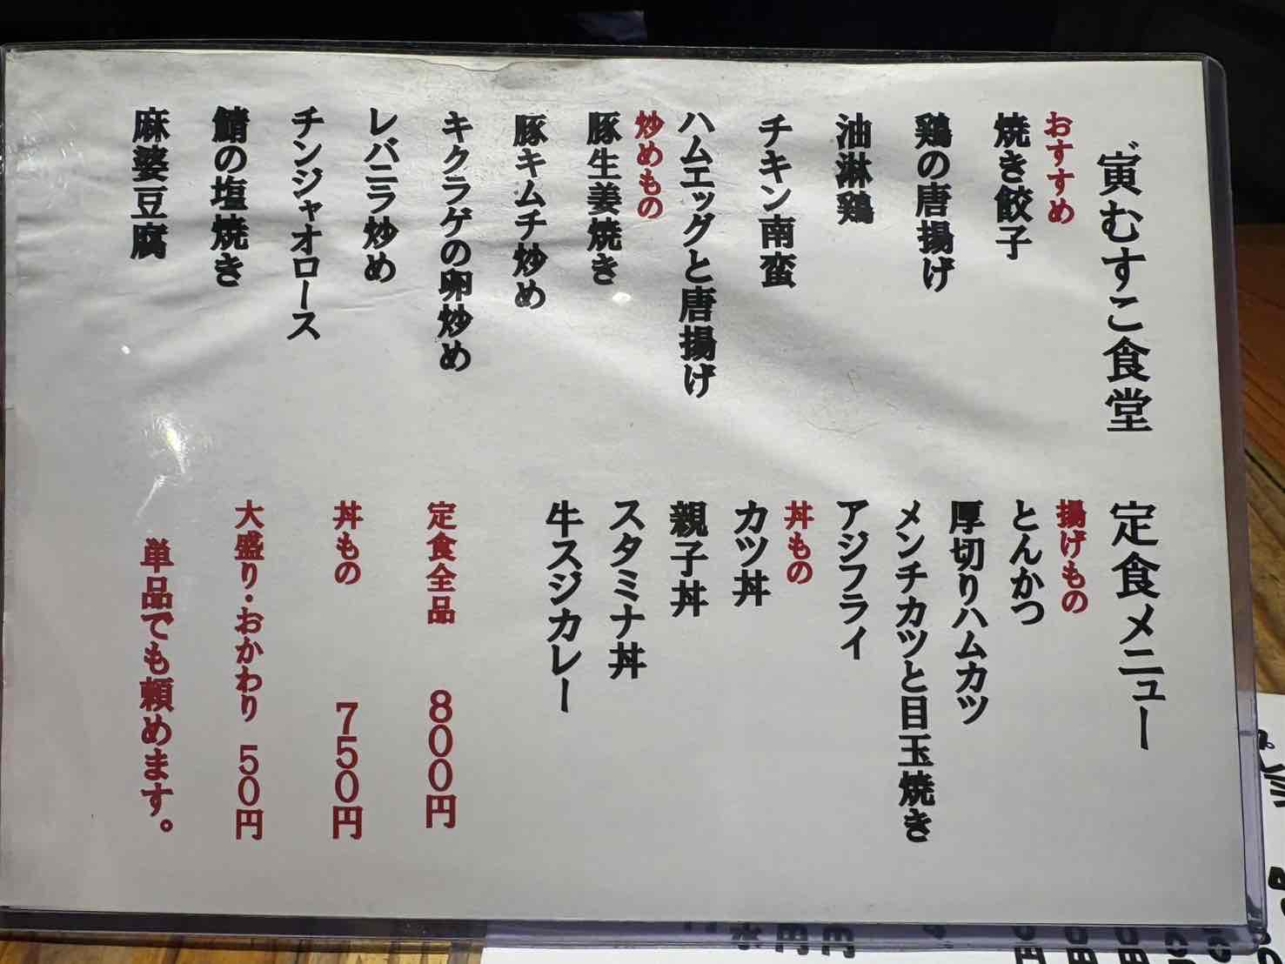 寅むすこ食堂　定食メニュー
おすすめ
焼き餃子
鶏の唐揚げ
油淋鶏
チキン南蛮
ハムエッグと唐揚げ
炒めもの
豚生姜焼き
豚キムチ炒め
キクラゲの卵炒め
レバニラ炒め
チンジャオロース
鯖の塩焼き
麻婆豆腐
揚げもの
とんかつ
厚切りハムカツ
メンチカツと目玉焼き
アジフライ
丼もの
カツ丼
親子丼
スタミナ丼
牛スジカレー
定食全品　８００円
丼もの　７５０円
大盛り・おかわり　５０円
単品でも頼めます。